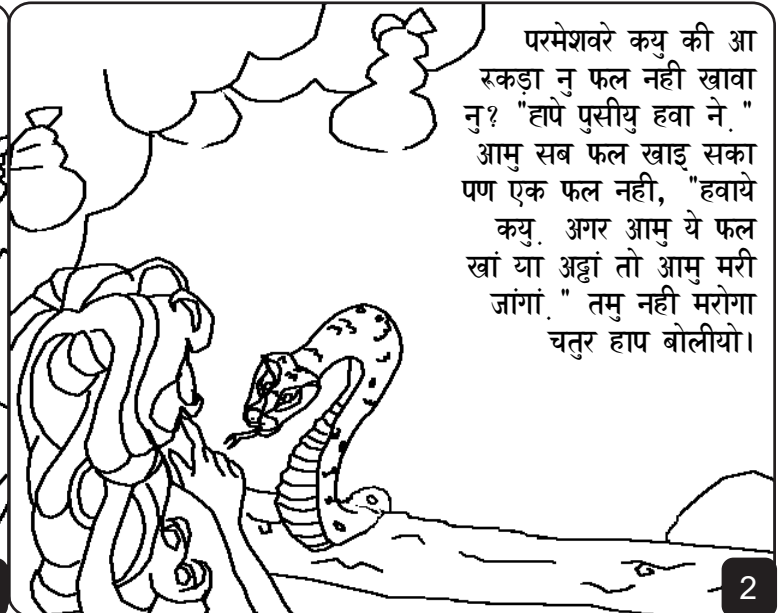 परमेशवरे कयु की आ
रूकड़ा नु फल नही खावा
नु? "हापे पुसीयु हवा ने."
आमु सब फल खाइ सका
पण एक फल नही, "हवाये
कयु. अगर आमु ये फल
खां या अढ्ढां तो आमु मरी
जांगां." तमु नही मरोगा
चतुर हाप बोलीयो।
2